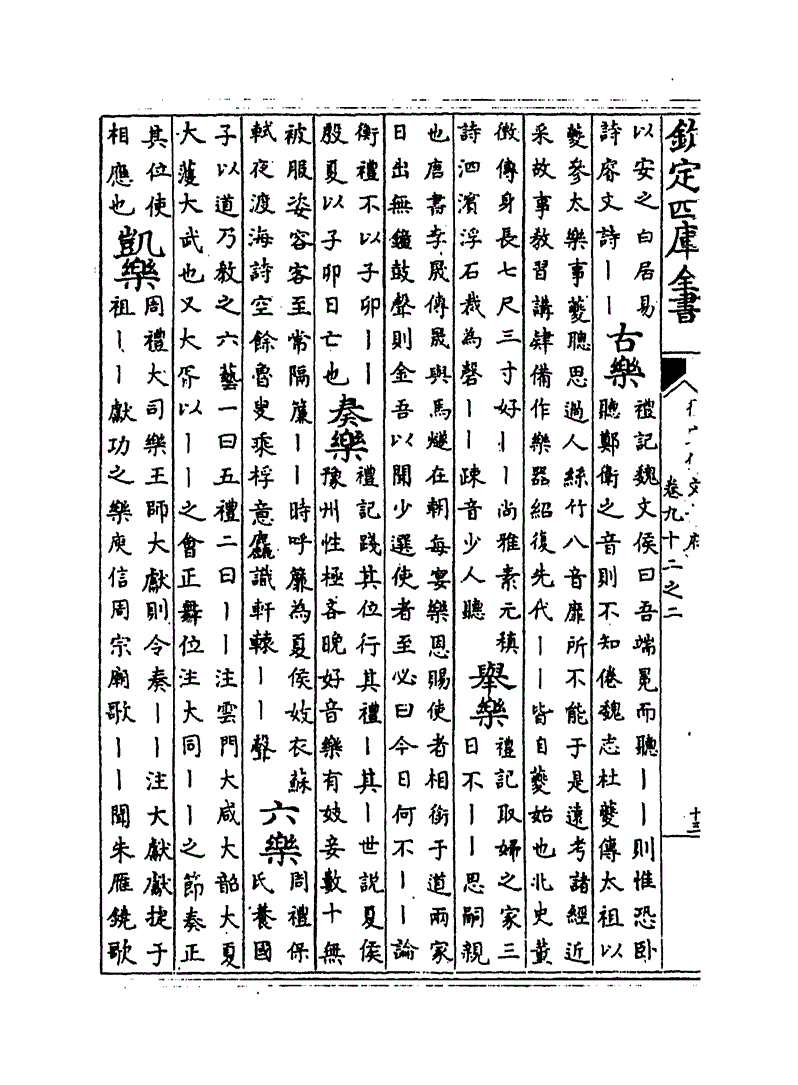 欽定四庫全書
卷九十二之二
十三
以安之白居易
詩睿文詩丨丨
古樂
禮記魏文侯曰吾端冕而聽丨丨則惟恐臥
聽鄭衛之音則不知倦魏志杜夔傳太祖以
夔參太樂事夔聰思過人絲竹八音靡所不能于是遠考諸經近
采故事教習講肄備作樂器紹復先代丨丨皆自夔始也北史董
徵傳身長七尺三寸好丨丨尚雅素元稹
詩泗濱浮石裁為磬丨丨疎音少人聽
舉樂
禮記取婦之家三
日不丨丨思嗣親
也唐書李晟傳晟與馬燧在朝每宴樂恩賜使者相銜于道兩家
日出無鐘鼓聲則金吾以聞少選使者至必曰今日何不丨丨論
衡禮不以子卯丨丨
殷夏以子卯日亡也
奏樂
禮記踐其位行其禮丨其丨世說夏侯
豫州性極吝晚好音樂有妓妾數十無
被服姿容客至常隔簾丨丨時呼簾為夏侯妓衣蘇
軾夜渡海詩空餘魯叟乘桴意麤識軒轅丨丨聲
六樂
周禮保
氏養國
子以道乃教之六藝一曰五禮二曰丨丨注雲門大咸大韶大夏
大濩大武也又大胥以丨丨之會正舞位注大同丨丨之節奏正
其位使
相應也
凱樂
周禮大司樂王師大獻則令奏丨丨注大獻獻捷于
祖丨丨獻功之樂庾信周宗廟歌丨丨聞朱雁鐃歌